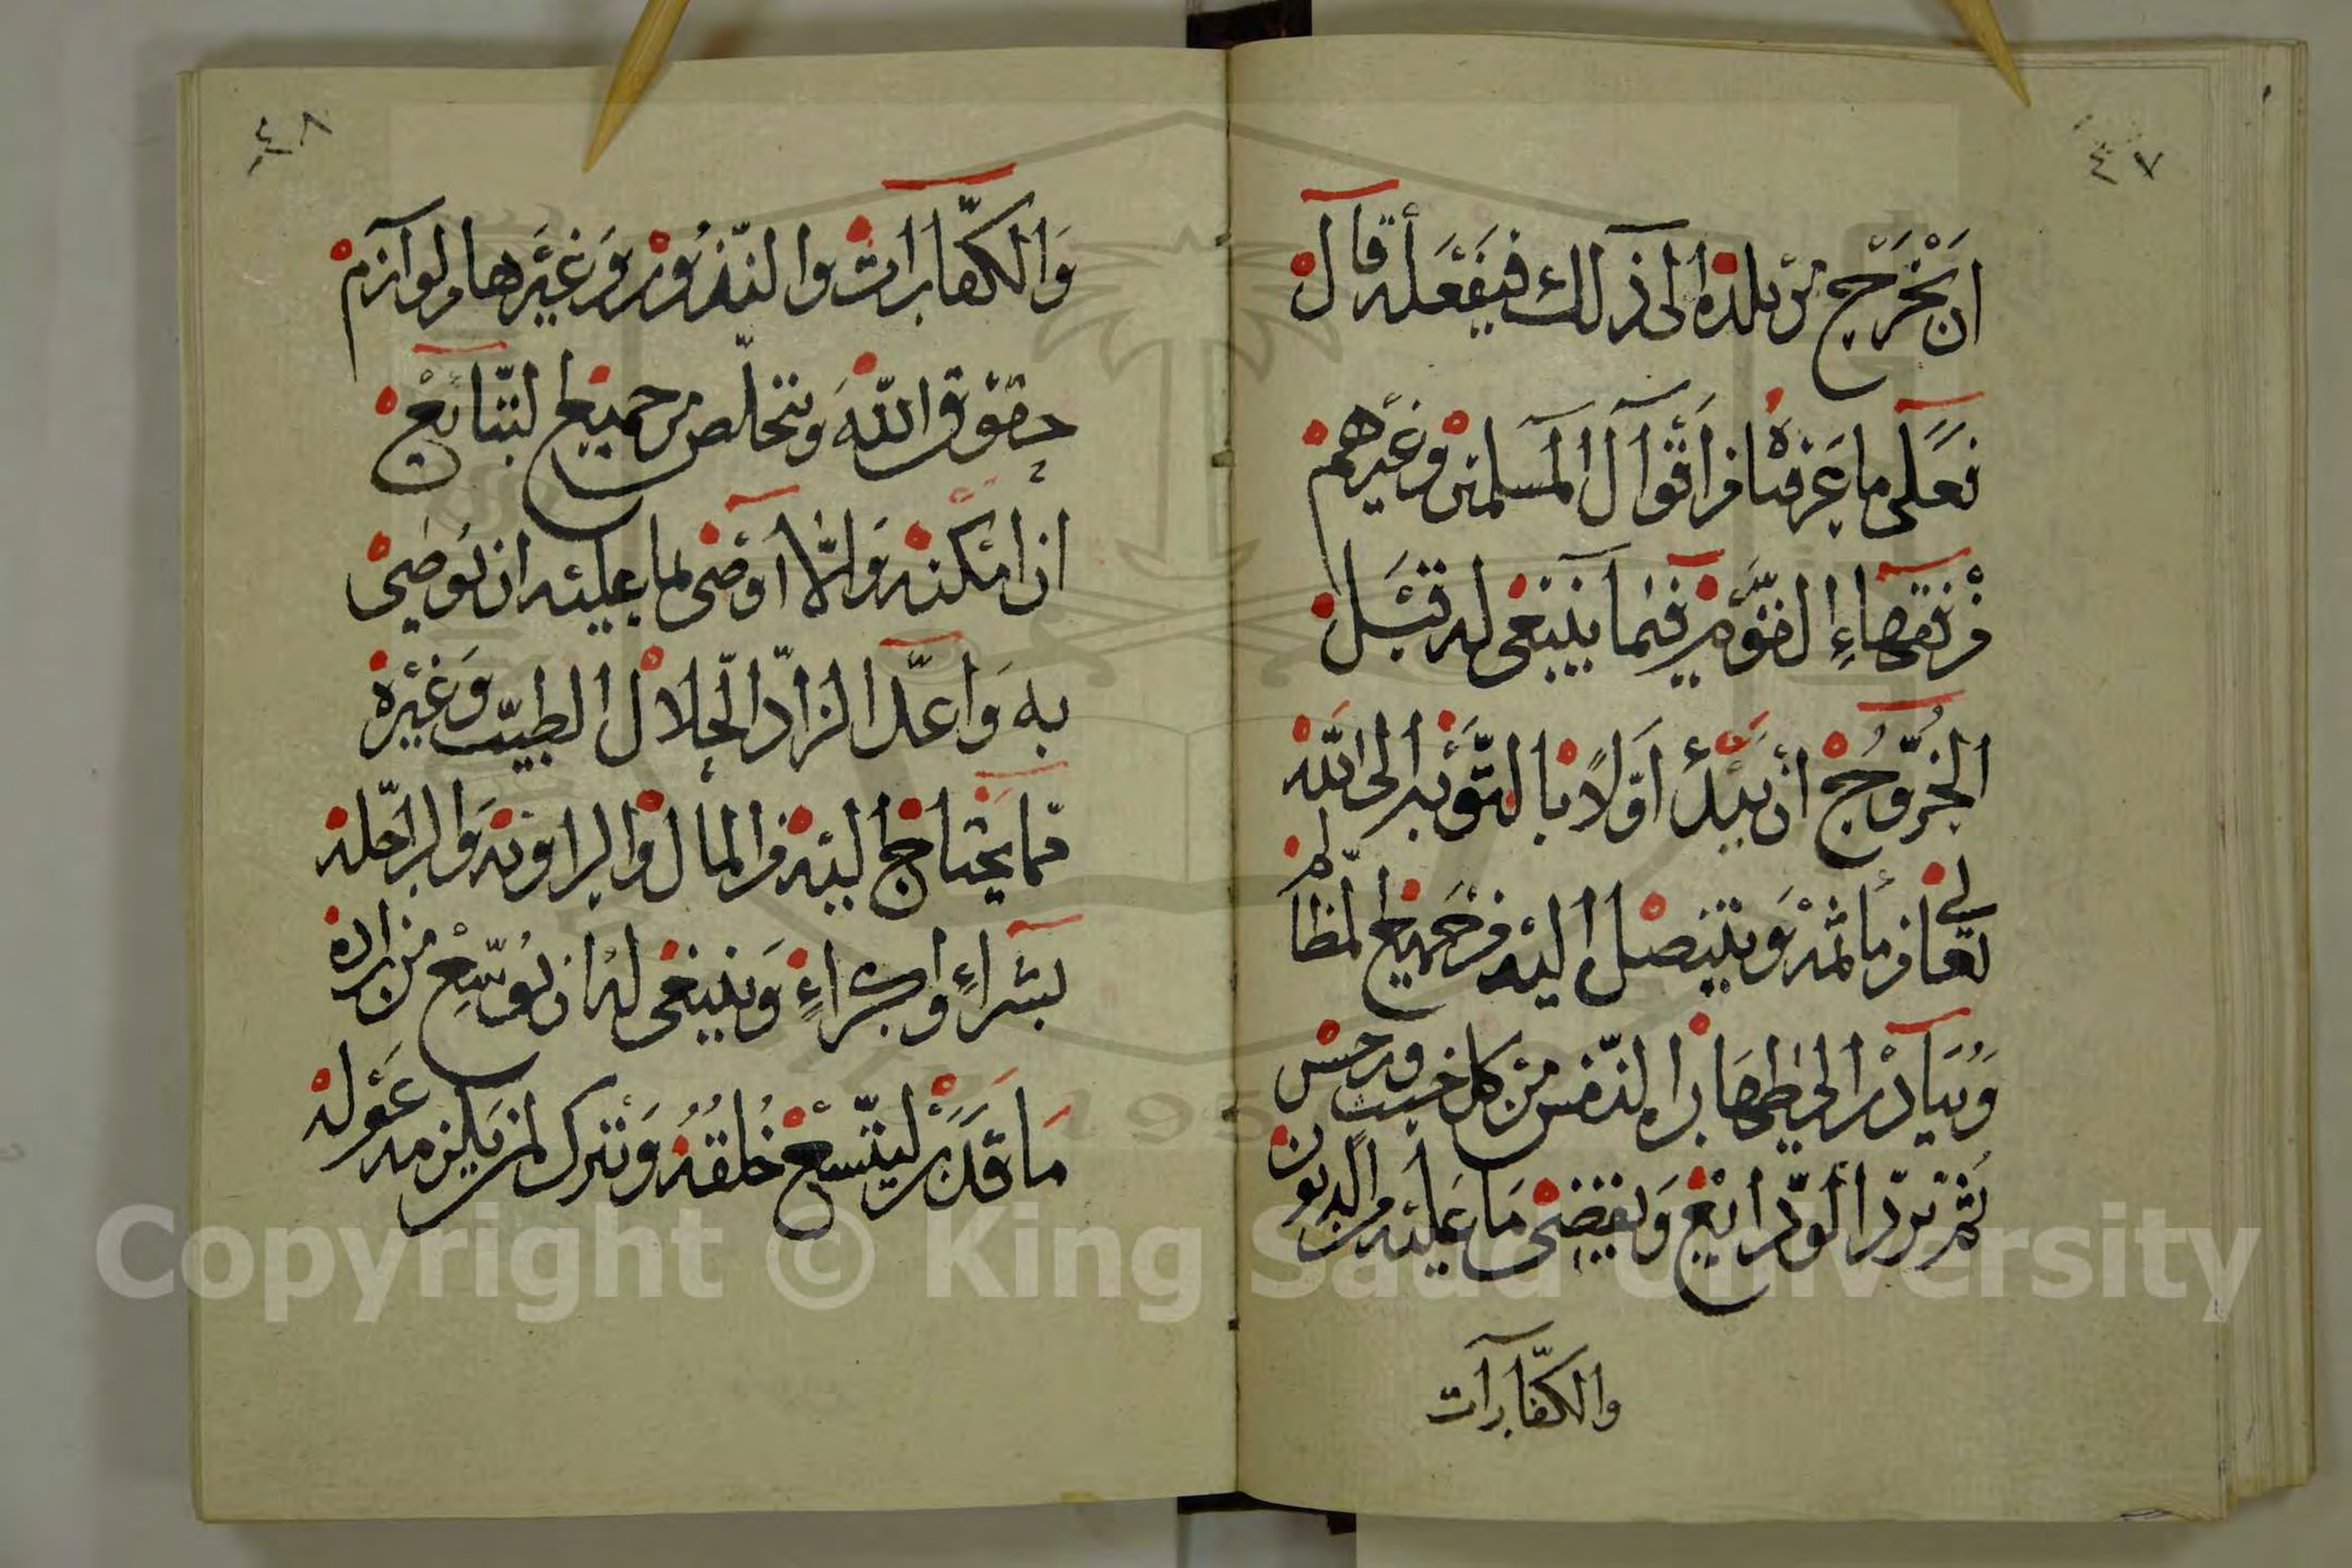 ٤٧
ان يخرج من بلده الى ذلك فيفعله قال
فعلى ما عرفناه من اقوال المسلمين وغيرهم
من فقهاء القوم فيما ينبغي له قبل
الخروج ان يبدأ اولا بالتوبه الى الله
تعالى من مأثمه ويتنصل اليه من جميع المظالم
ويبادر الى طهاره النفس من كل خبيث ورجس
ثم يرد الودايع ويقضي ما عليه من الديون
والكفارات
٤٨
والكفارات والنذور وغيرها ولوازم
حقوق الله ويتخلص من جميع التبايع
ان امكنه والا اوصى لما عليه ان يوصي
به واعد الزاد الحلال الطيب وغيره
مما يحتاج اليه من المال والراويه والراحله
بشراء او كراء وينبغي له ان يوسع من زاده
ما قدر ليتسع خلقه ويترك لمن يلزمه عوله
Copyright © King Saud University
195